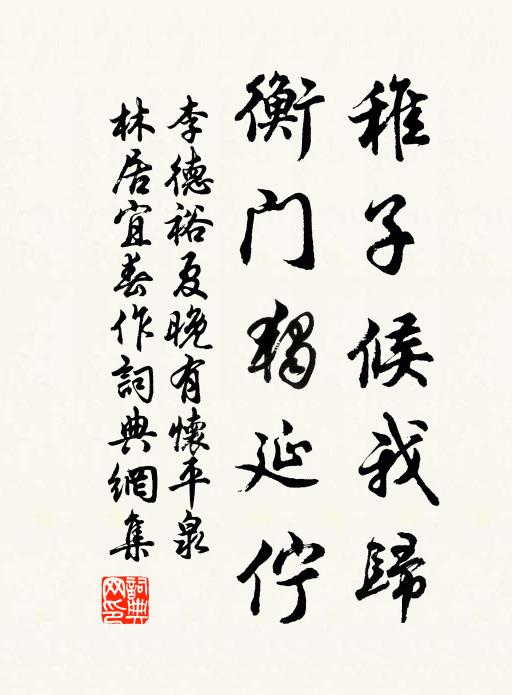 稚子候我歸
衡门獨延佇
李德裕夏晚有懷平泉
林居宜春作詞典網集
詞典网印